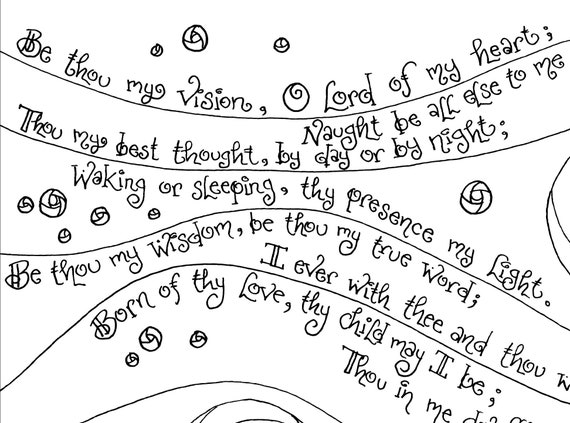 Be thou my Vision, O Lord of my heart;
Naught be all else to me
Thou my best thought, by day or by night;
Waking or sleeping, thy presence my Light.
Be thou my Wisdom, be thou my true Word;
I ever with thee and thou
Born of thy Love, thy child may I be;
Thou in me